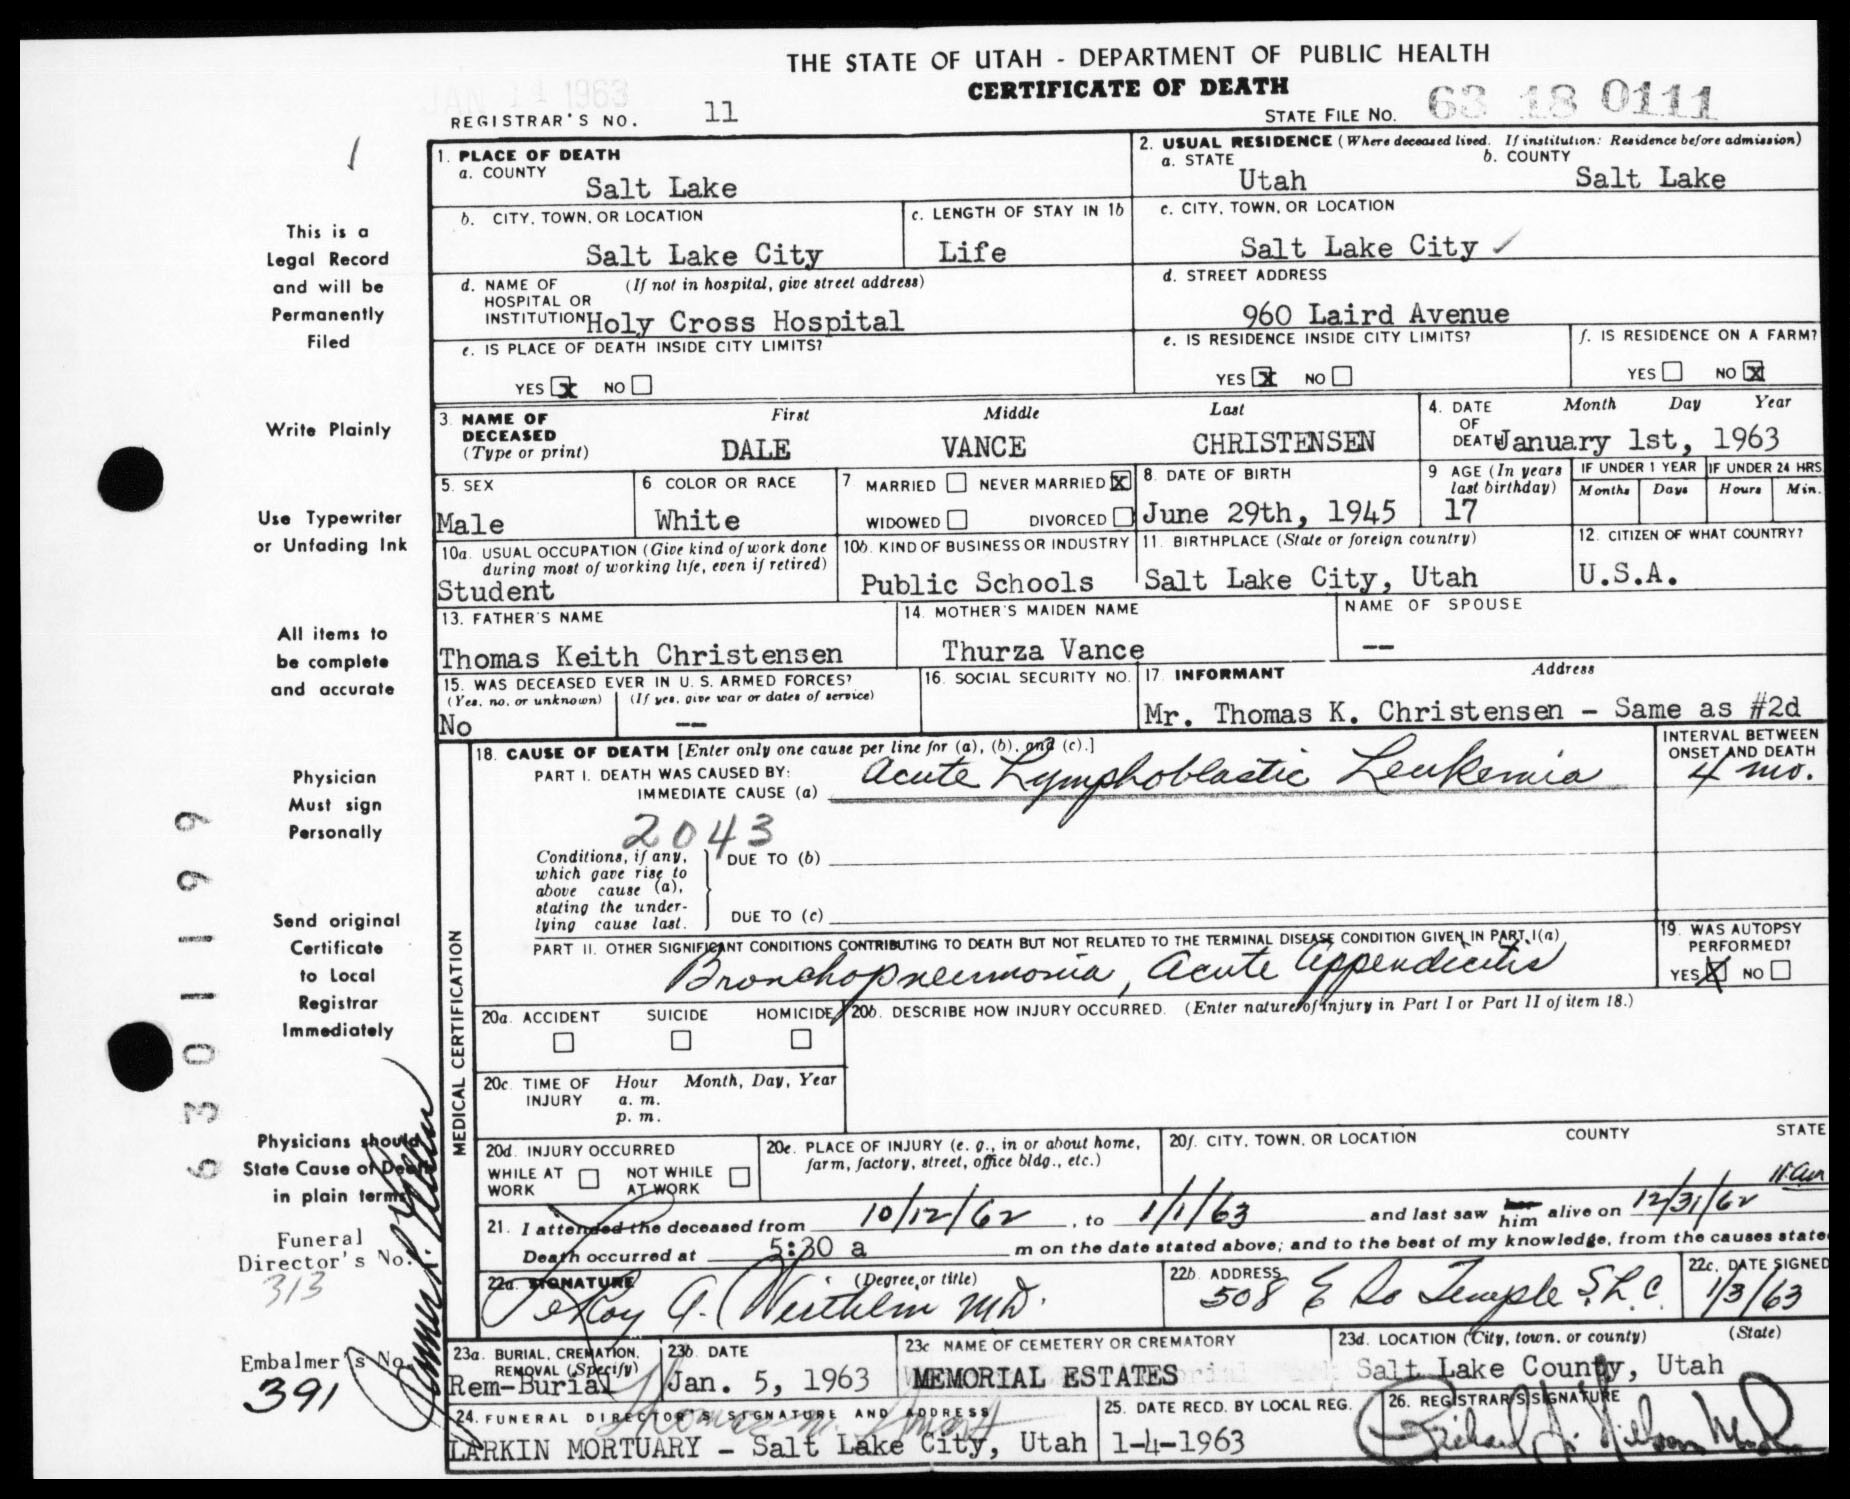 THE STATE OF UTAH - DEPARTMENT OF PUBLIC HEALTH
CERTIFICATE OF DEATH
JAN 11 1963
REGISTRAR'S NO. 11
STATE FILE NO. 63 18 0111
This is a
Legal Record
and will be
Permanently
Filed
Write Plainly
Use Typewriter
or Unfading Ink
All items to
be complete
and accurate
Physician
Must sign
Personally
Send original
Certificate
to Local
Registrar
Immediately
Physicians should
State Cause of Death
in plain terms
Funeral
Director's No.
313
Embalmer's No.
391
6301199
1. PLACE OF DEATH
a. COUNTY
Salt Lake
2. USUAL RESIDENCE (Where deceased lived. If institution: Residence before admission)
a. STATE b. COUNTY
Utah Salt Lake
b. CITY, TOWN, OR LOCATION
Salt Lake City
c. LENGTH OF STAY IN 1b
Life
c. CITY, TOWN, OR LOCATION
Salt Lake City ✓
d. NAME OF (If not in hospital, give street address)
HOSPITAL OR
INSTITUTION Holy Cross Hospital
d. STREET ADDRESS
960 Laird Avenue
e. IS PLACE OF DEATH INSIDE CITY LIMITS?
YES X NO
e. IS RESIDENCE INSIDE CITY LIMITS?
YES X NO
f. IS RESIDENCE ON A FARM?
YES NO X
3. NAME OF DECEASED (Type or print)
First Middle Last
DALE VANCE CHRISTENSEN
4. DATE OF DEATH Month Day Year
January 1st, 1963
5. SEX
Male
6 COLOR OR RACE
White
7 MARRIED NEVER MARRIED X
WIDOWED DIVORCED
8. DATE OF BIRTH
June 29th, 1945
9 AGE (In years last birthday)
17
IF UNDER 1 YEAR IF UNDER 24 HRS.
Months Days Hours Min.
10a. USUAL OCCUPATION (Give kind of work done
during most of working life, even if retired)
Student
10b. KIND OF BUSINESS OR INDUSTRY
Public Schools
11. BIRTHPLACE (State or foreign country)
Salt Lake City, Utah
12. CITIZEN OF WHAT COUNTRY?
U.S.A.
13. FATHER'S NAME
Thomas Keith Christensen
14. MOTHER'S MAIDEN NAME
Thurza Vance
NAME OF SPOUSE
--
15. WAS DECEASED EVER IN U. S. ARMED FORCES?
(Yes, no, or unknown) (If yes, give war or dates of service)
No --
16. SOCIAL SECURITY NO.
17. INFORMANT Address
Mr. Thomas K. Christensen - Same as #2d
MEDICAL CERTIFICATION
18. CAUSE OF DEATH [Enter only one cause per line for (a), (b), and (c).]
PART I. DEATH WAS CAUSED BY:
IMMEDIATE CAUSE (a) Acute Lymphoblastic Leukemia
INTERVAL BETWEEN
ONSET AND DEATH
4 mo.
2043
Conditions, if any,
which gave rise to
above cause (a),
stating the under-
lying cause last.
DUE TO (b)
DUE TO (c)
PART II. OTHER SIGNIFICANT CONDITIONS CONTRIBUTING TO DEATH BUT NOT RELATED TO THE TERMINAL DISEASE CONDITION GIVEN IN PART I(a)
Bronchopneumonia, Acute Appendicitis
19. WAS AUTOPSY
PERFORMED?
YES X NO
20a. ACCIDENT SUICIDE HOMICIDE
20b. DESCRIBE HOW INJURY OCCURRED. (Enter nature of injury in Part I or Part II of item 18.)
20c. TIME OF INJURY Hour Month, Day, Year
a. m.
p. m.
20d. INJURY OCCURRED
WHILE AT WORK NOT WHILE AT WORK
20e. PLACE OF INJURY (e. g., in or about home,
farm, factory, street, office bldg., etc.)
20f. CITY, TOWN, OR LOCATION COUNTY STATE
21. I attended the deceased from 10/12/62, to 1/1/63 and last saw her him alive on 12/31/62 11 am
Death occurred at 5:30 a m on the date stated above; and to the best of my knowledge, from the causes state
22a. SIGNATURE (Degree or title)
LeRoy A. Wirthlin M.D.
22b. ADDRESS
508 E So Temple S.L.C.
22c. DATE SIGNED
1/3/63
23a. BURIAL, CREMATION,
REMOVAL (Specify)
Rem-Burial
23b. DATE
Jan. 5, 1963
23c NAME OF CEMETERY OR CREMATORY
MEMORIAL ESTATES
23d. LOCATION (City, town, or county) (State)
Salt Lake County, Utah
24. FUNERAL DIRECTOR'S SIGNATURE AND ADDRESS
LARKIN MORTUARY - Salt Lake City, Utah
25. DATE RECD. BY LOCAL REG.
1-4-1963
26. REGISTRAR'S SIGNATURE